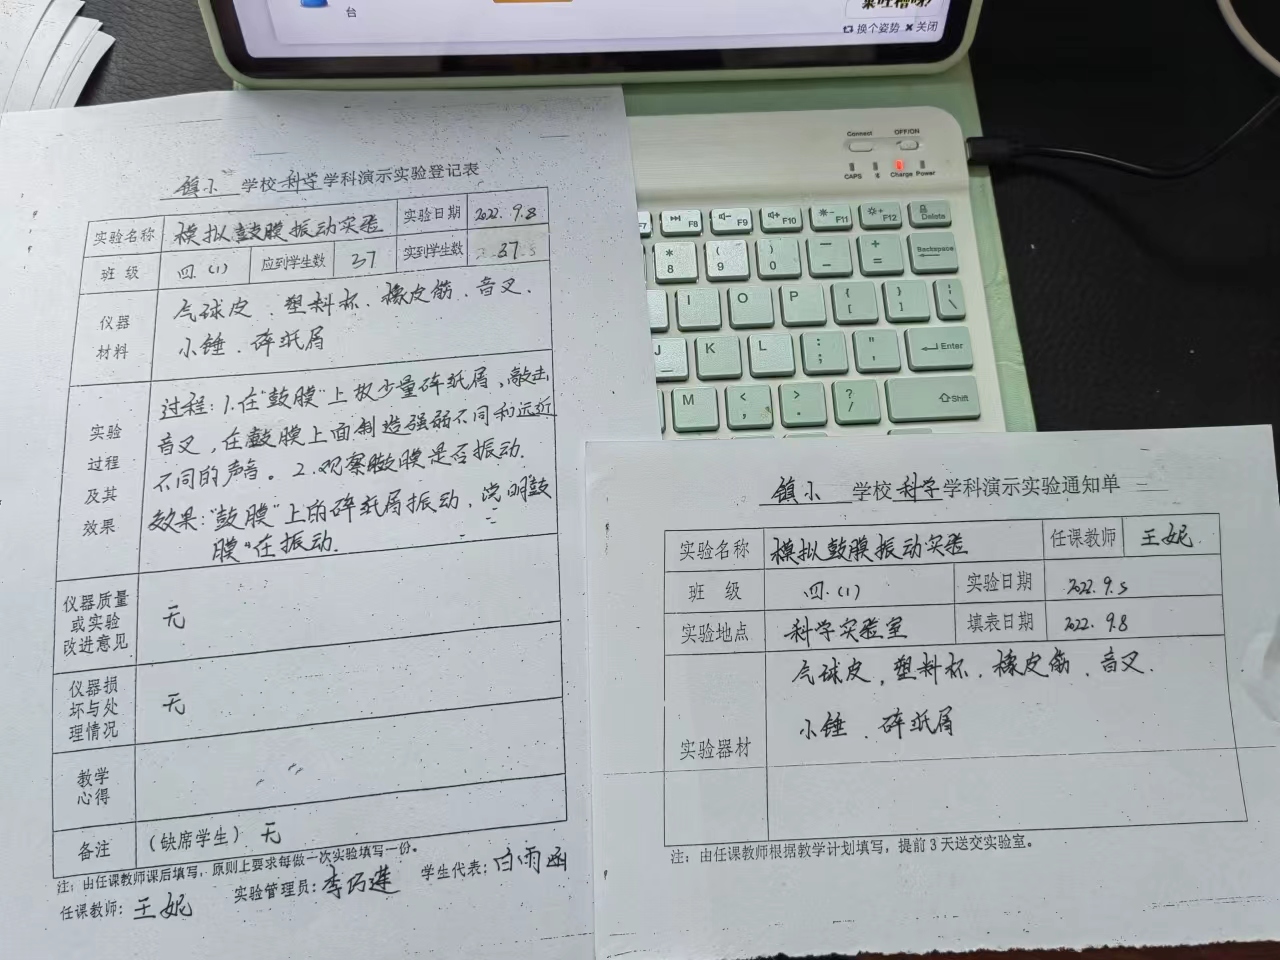 台
果吐槽呀
换个姿势 ✖关闭
镇小 学校 科学 学科演示实验登记表
实验名称 模拟鼓膜振动实验 实验日期 2022.9.8
班 级 四.(1) 应到学生数 37 实到学生数 37
仪器
材料
气球皮、塑料杯、橡皮筋、音叉、
小锤、碎纸屑
实验
过程
及其
效果
过程：1.在"鼓膜"上放少量碎纸屑,敲击
音叉,在鼓膜上面制造强弱不同和远近
不同的声音。2.观察鼓膜是否振动.
效果："鼓膜"上的碎纸屑振动,说明鼓
膜"在振动.
仪器质量
或实验
改进意见
无
仪器损
坏与处
理情况
无
教学
心得
备注 (缺席学生) 无
注：由任课教师课后填写，原则上要求每做一次实验填写一份。
任课教师：王妮 实验管理员：李巧莲 学生代表：白雨函
Connect OFF/ON
CAPS Charge Power
F7 F8 F9 F10 F11 F12 Delete
* 8 ( 9 ) 0 — - + = Backspace
I O P { [ } ] | \
J K L : ; " ' Enter
M < , > . ? / Shift
镇小 学校 科学 学科演示实验通知单
实验名称 模拟鼓膜振动实验 任课教师 王妮
班 级 四.(1) 实验日期 2022.9.5
实验地点 科学实验室 填表日期 2022.9.8
实验器材
气球皮,塑料杯、橡皮筋、音叉.
小锤、碎纸屑
注：由任课教师根据教学计划填写，提前3天送交实验室。